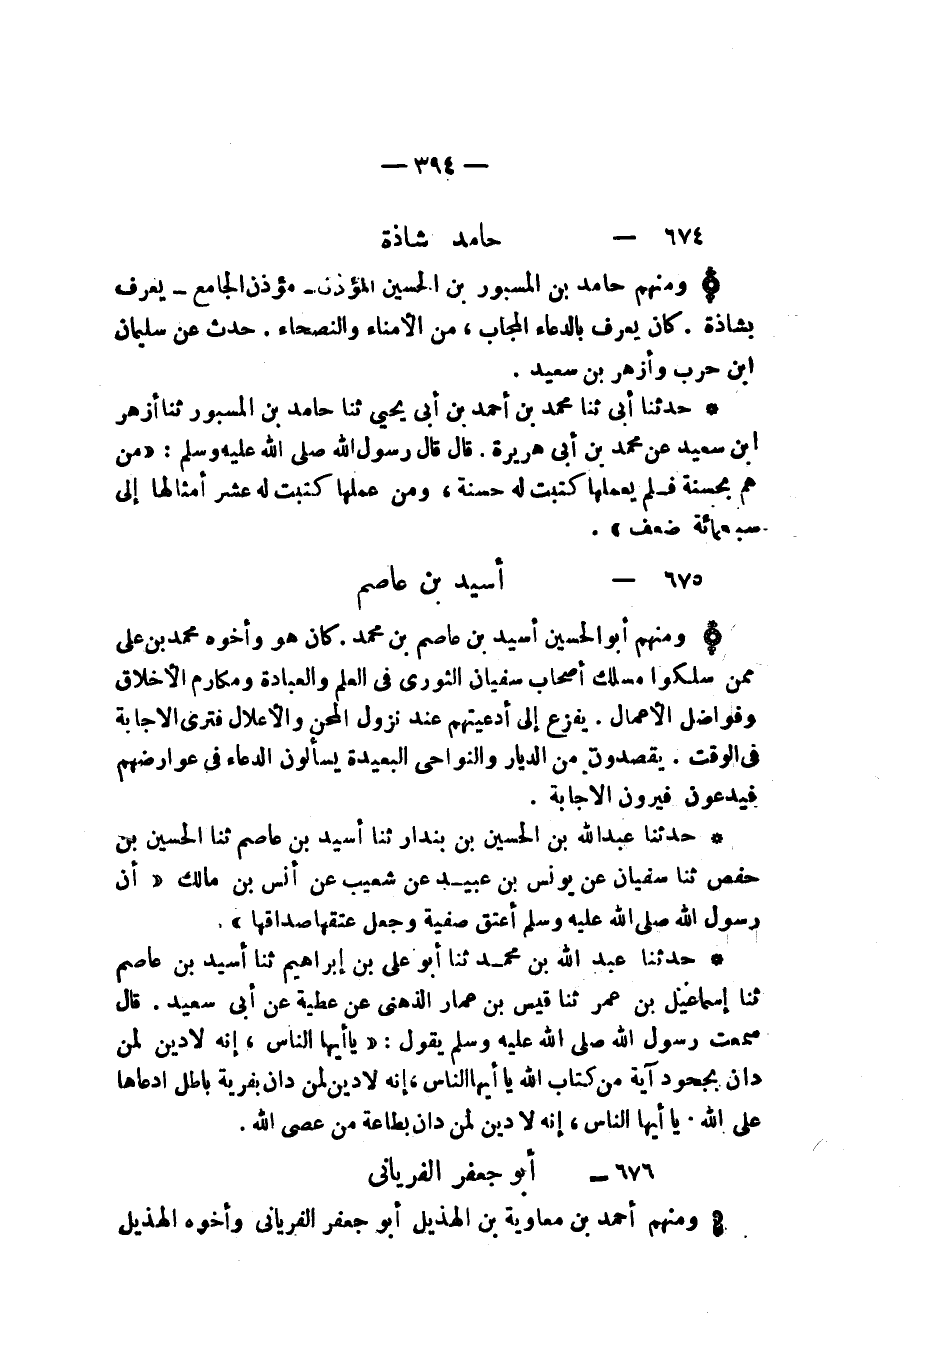 — ٣٩٤ —
٦٧٤ — حامد شاذة
۞ ومنهم حامد بن المسبور بن الحسين المؤذن ـ مؤذن الجامع ـ يعرف
بشاذة . كان يعرف بالدعاء المجاب ، من الأمناء والنصحاء . حدث عن سليمان
ابن حرب وأزهر بن سعيد .
* حدثنا أبى ثنا محمد بن أحمد بن أبى يحيى ثنا حامد بن المسبور ثنا أزهر
ابن سعيد عن محمد بن أبى هريرة . قال قال رسول الله صلى الله عليه وسلم : « من
هم بحسنة فلم يعملها كتبت له حسنة ، ومن عملها كتبت له عشر أمثالها إلى
سبعمائة ضعف » .
٦٧٥ — أسيد بن عاصم
۞ ومنهم أبو الحسين أسيد بن عاصم بن محمد . كان هو وأخوه محمد بن على
ممن سلكوا مسلك أصحاب سفيان الثورى فى العلم والعبادة ومكارم الأخلاق
وفواضل الأعمال . يفزع إلى أدعيتهم عند نزول المحن والاعلال فترى الاجابة
فى الوقت . يقصدون من الديار والنواحى البعيدة يسألون الدعاء فى عوارضهم
فيدعون فيرون الاجابة .
* حدثنا عبد الله بن الحسين بن بندار ثنا أسيد بن عاصم ثنا الحسين بن
حفص ثنا سفيان عن يونس بن عبيد عن شعيب عن أنس بن مالك « أن
رسول الله صلى الله عليه وسلم أعتق صفية وجعل عتقها صداقها » .
* حدثنا عبد الله بن محمد ثنا أبو على بن إبراهيم ثنا أسيد بن عاصم
ثنا إسماعيل بن عمر ثنا قيس بن عمار الذهنى عن عطية عن أبى سعيد . قال
سمعت رسول الله صلى الله عليه وسلم يقول : « يا أيها الناس ، إنه لا دين لمن
دان بجحود آية من كتاب الله يا أيها الناس ، إنه لا دين لمن دان بفرية باطل ادعاها
على الله . يا أيها الناس ، إنه لا دين لمن دان بطاعة من عصى الله .
٦٧٦ — أبو جعفر الفريانى
۞ ومنهم أحمد بن معاوية بن الهذيل أبو جعفر الفريانى وأخوه الهذيل